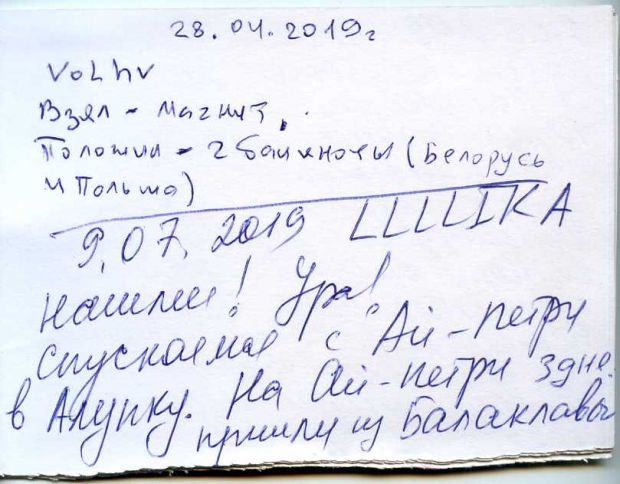 28.04.2019г
VoLhv
Взял - магнит.
Положил - 2 банкноты (Белорусь
и Польша)
9.07.2019 LLLLIKA
Нашли! Ура!
Спускаемся с Ай-Петри
в Алупку. На Ай-Петри 3 дня.
пришли из Балаклавы